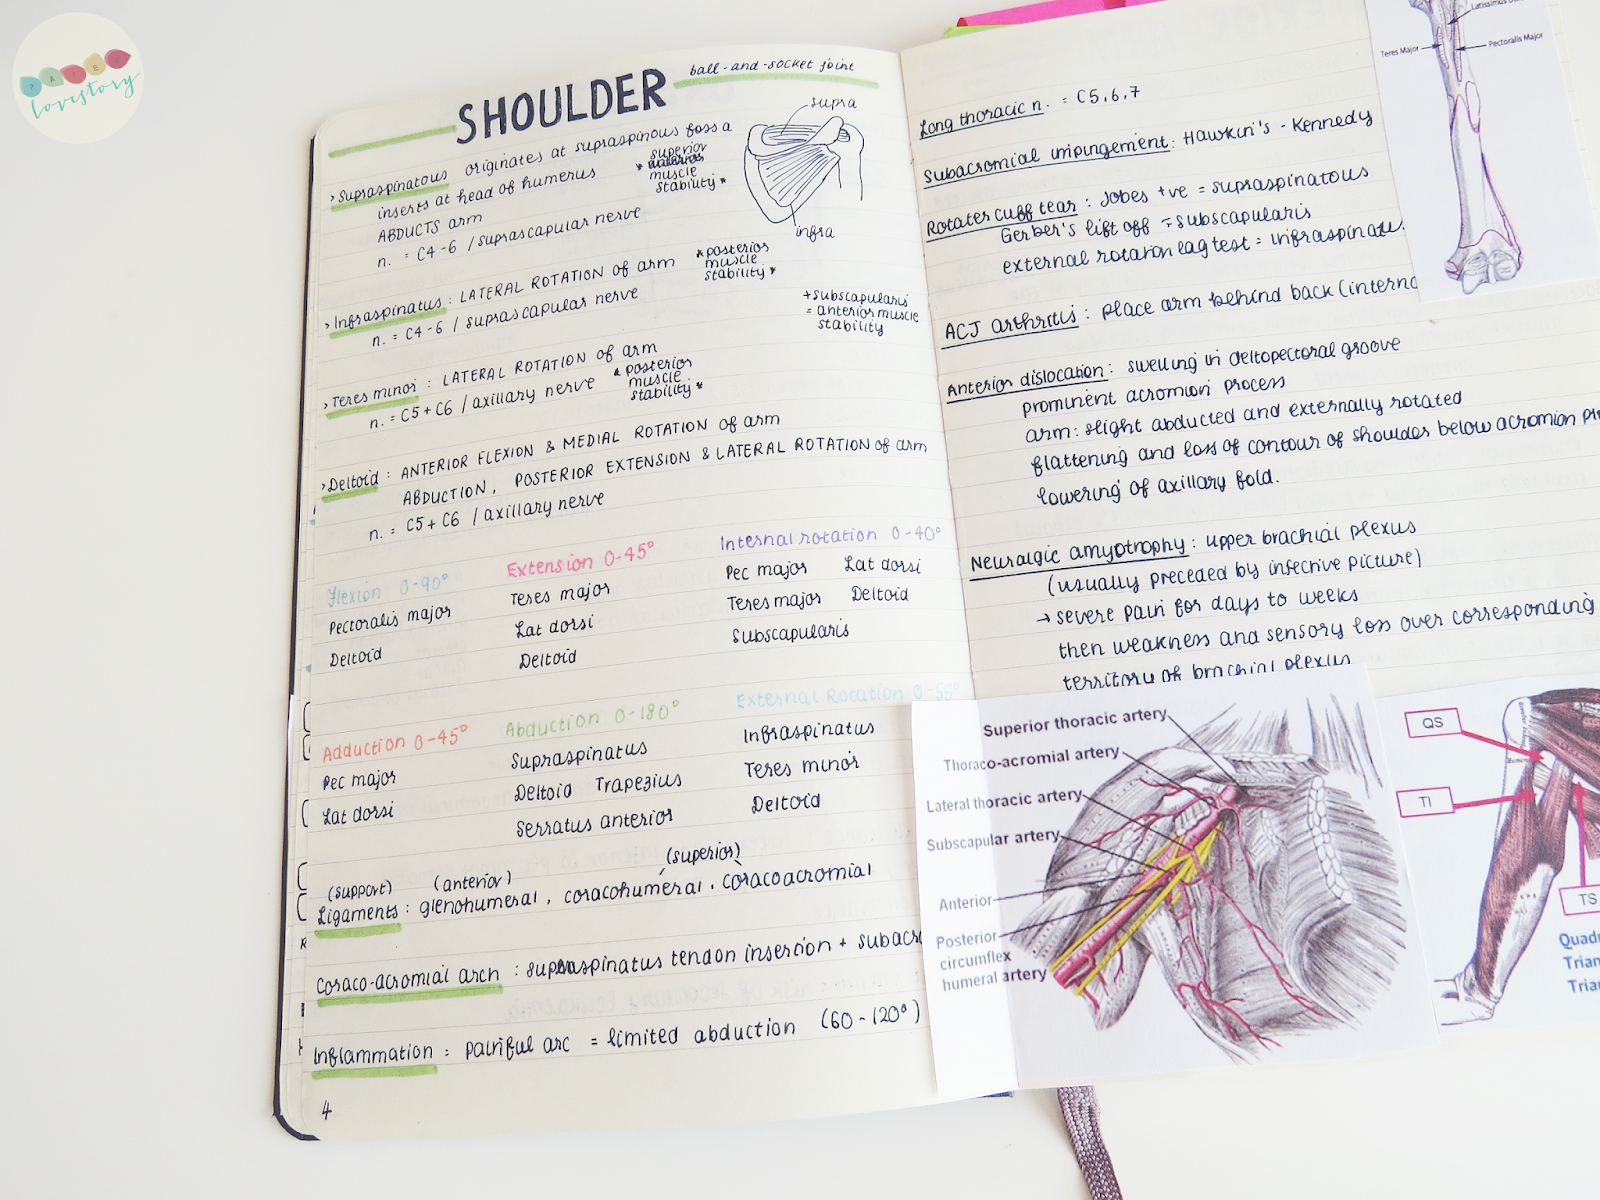 PAPER
lovestory
SHOULDER
ball-and-socket joint
> Supraspinatous originates at supraspinous fossa a
inserts at head of humerus
ABDUCTS arm
n. = C4-6 / suprascapular nerve
* superior
muscle
stability *
supra
infra
> Infraspinatus : LATERAL ROTATION of arm
n. = C4-6 / suprascapular nerve
* posterior
muscle
stability *
+ subscapularis
= anterior muscle
stability
> Teres minor : LATERAL ROTATION of arm
n. = C5+C6 / axillary nerve
* posterior
muscle
stability *
> Deltoid : ANTERIOR FLEXION & MEDIAL ROTATION of arm
ABDUCTION, POSTERIOR EXTENSION & LATERAL ROTATION of arm
n. = C5+C6 / axillary nerve
Flexion 0-90°
Pectoralis major
Deltoid
Extension 0-45°
Teres major
Lat dorsi
Deltoid
Internal rotation 0-40°
Pec major Lat dorsi
Teres major Deltoid
Subscapularis
Adduction 0-45°
Pec major
Lat dorsi
Abduction 0-180°
Supraspinatus
Deltoid Trapezius
Serratus anterior
External Rotation 0-55°
Infraspinatus
Teres minor
Deltoid
(support) (anterior) (superior)
Ligaments : glenohumeral, coracohumeral, coracoacromial
Coraco-acromial arch : supraspinatus tendon insertion + subacr
Inflammation = painful arc = limited abduction (60-120°)
4
Long thoracic n. = C5,6,7
Subacromial impingement : Hawkin's - Kennedy
Rotater cuff tear : Jobes +ve = supraspinatous
Gerber's lift off = subscapularis
external rotation lag test = infraspinatu
ACJ arthritis : place arm behind back (intern
Anterior dislocation : swelling in deltopectoral groove
prominent acromion process
arm: slight abducted and externally rotated
flattening and loss of contour of shoulder below acromion pr
lowering of axillary fold.
Neuralgic amyotrophy : upper brachial plexus
(usually preceded by infective picture)
→ severe pain for days to weeks
then weakness and sensory loss over corresponding
territory of brachial plexus
Latissimus
Teres Major
Pectoralis Major
Superior thoracic artery
Thoraco-acromial artery
Lateral thoracic artery
Subscapular artery
Anterior
Posterior
circumflex
humeral artery
QS
TI
TS
Quad
Trian
Tria